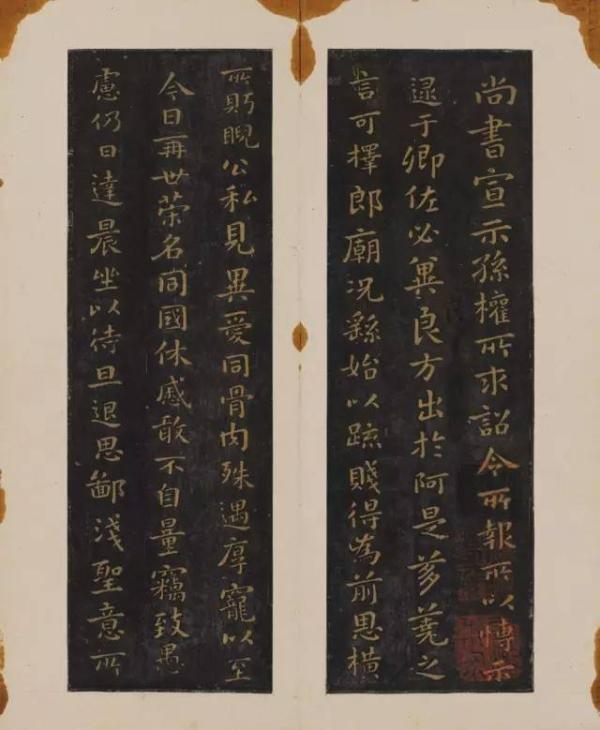 尚書宣示孫權所求詔令所報所以博示
逮于卿佐必冀良方出於阿是芻蕘之
言可擇郎廟況繇始以疏賤得為前恩橫
所眄睨公私見異愛同骨肉殊遇厚寵以至
今日再世榮名同國休慼敢不自量竊致愚
慮仍日達晨坐以待旦退思鄙淺聖意所